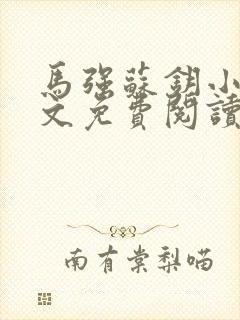 馬強蘇釧小
文免費閱讀
南有棠梨喵